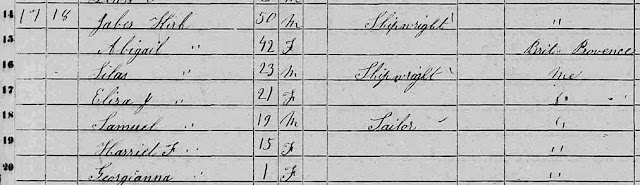 14 17 18 Jabes Kirk 50 M Shipwright "
15 Abigail " 42 F Brit Provence
16 Silas " 23 M Shipwright Me
17 Eliza J " 21 F "
18 Samuel " 19 M Sailor "
19 Harriet F " 15 F "
20 Georgianna " 1 F "